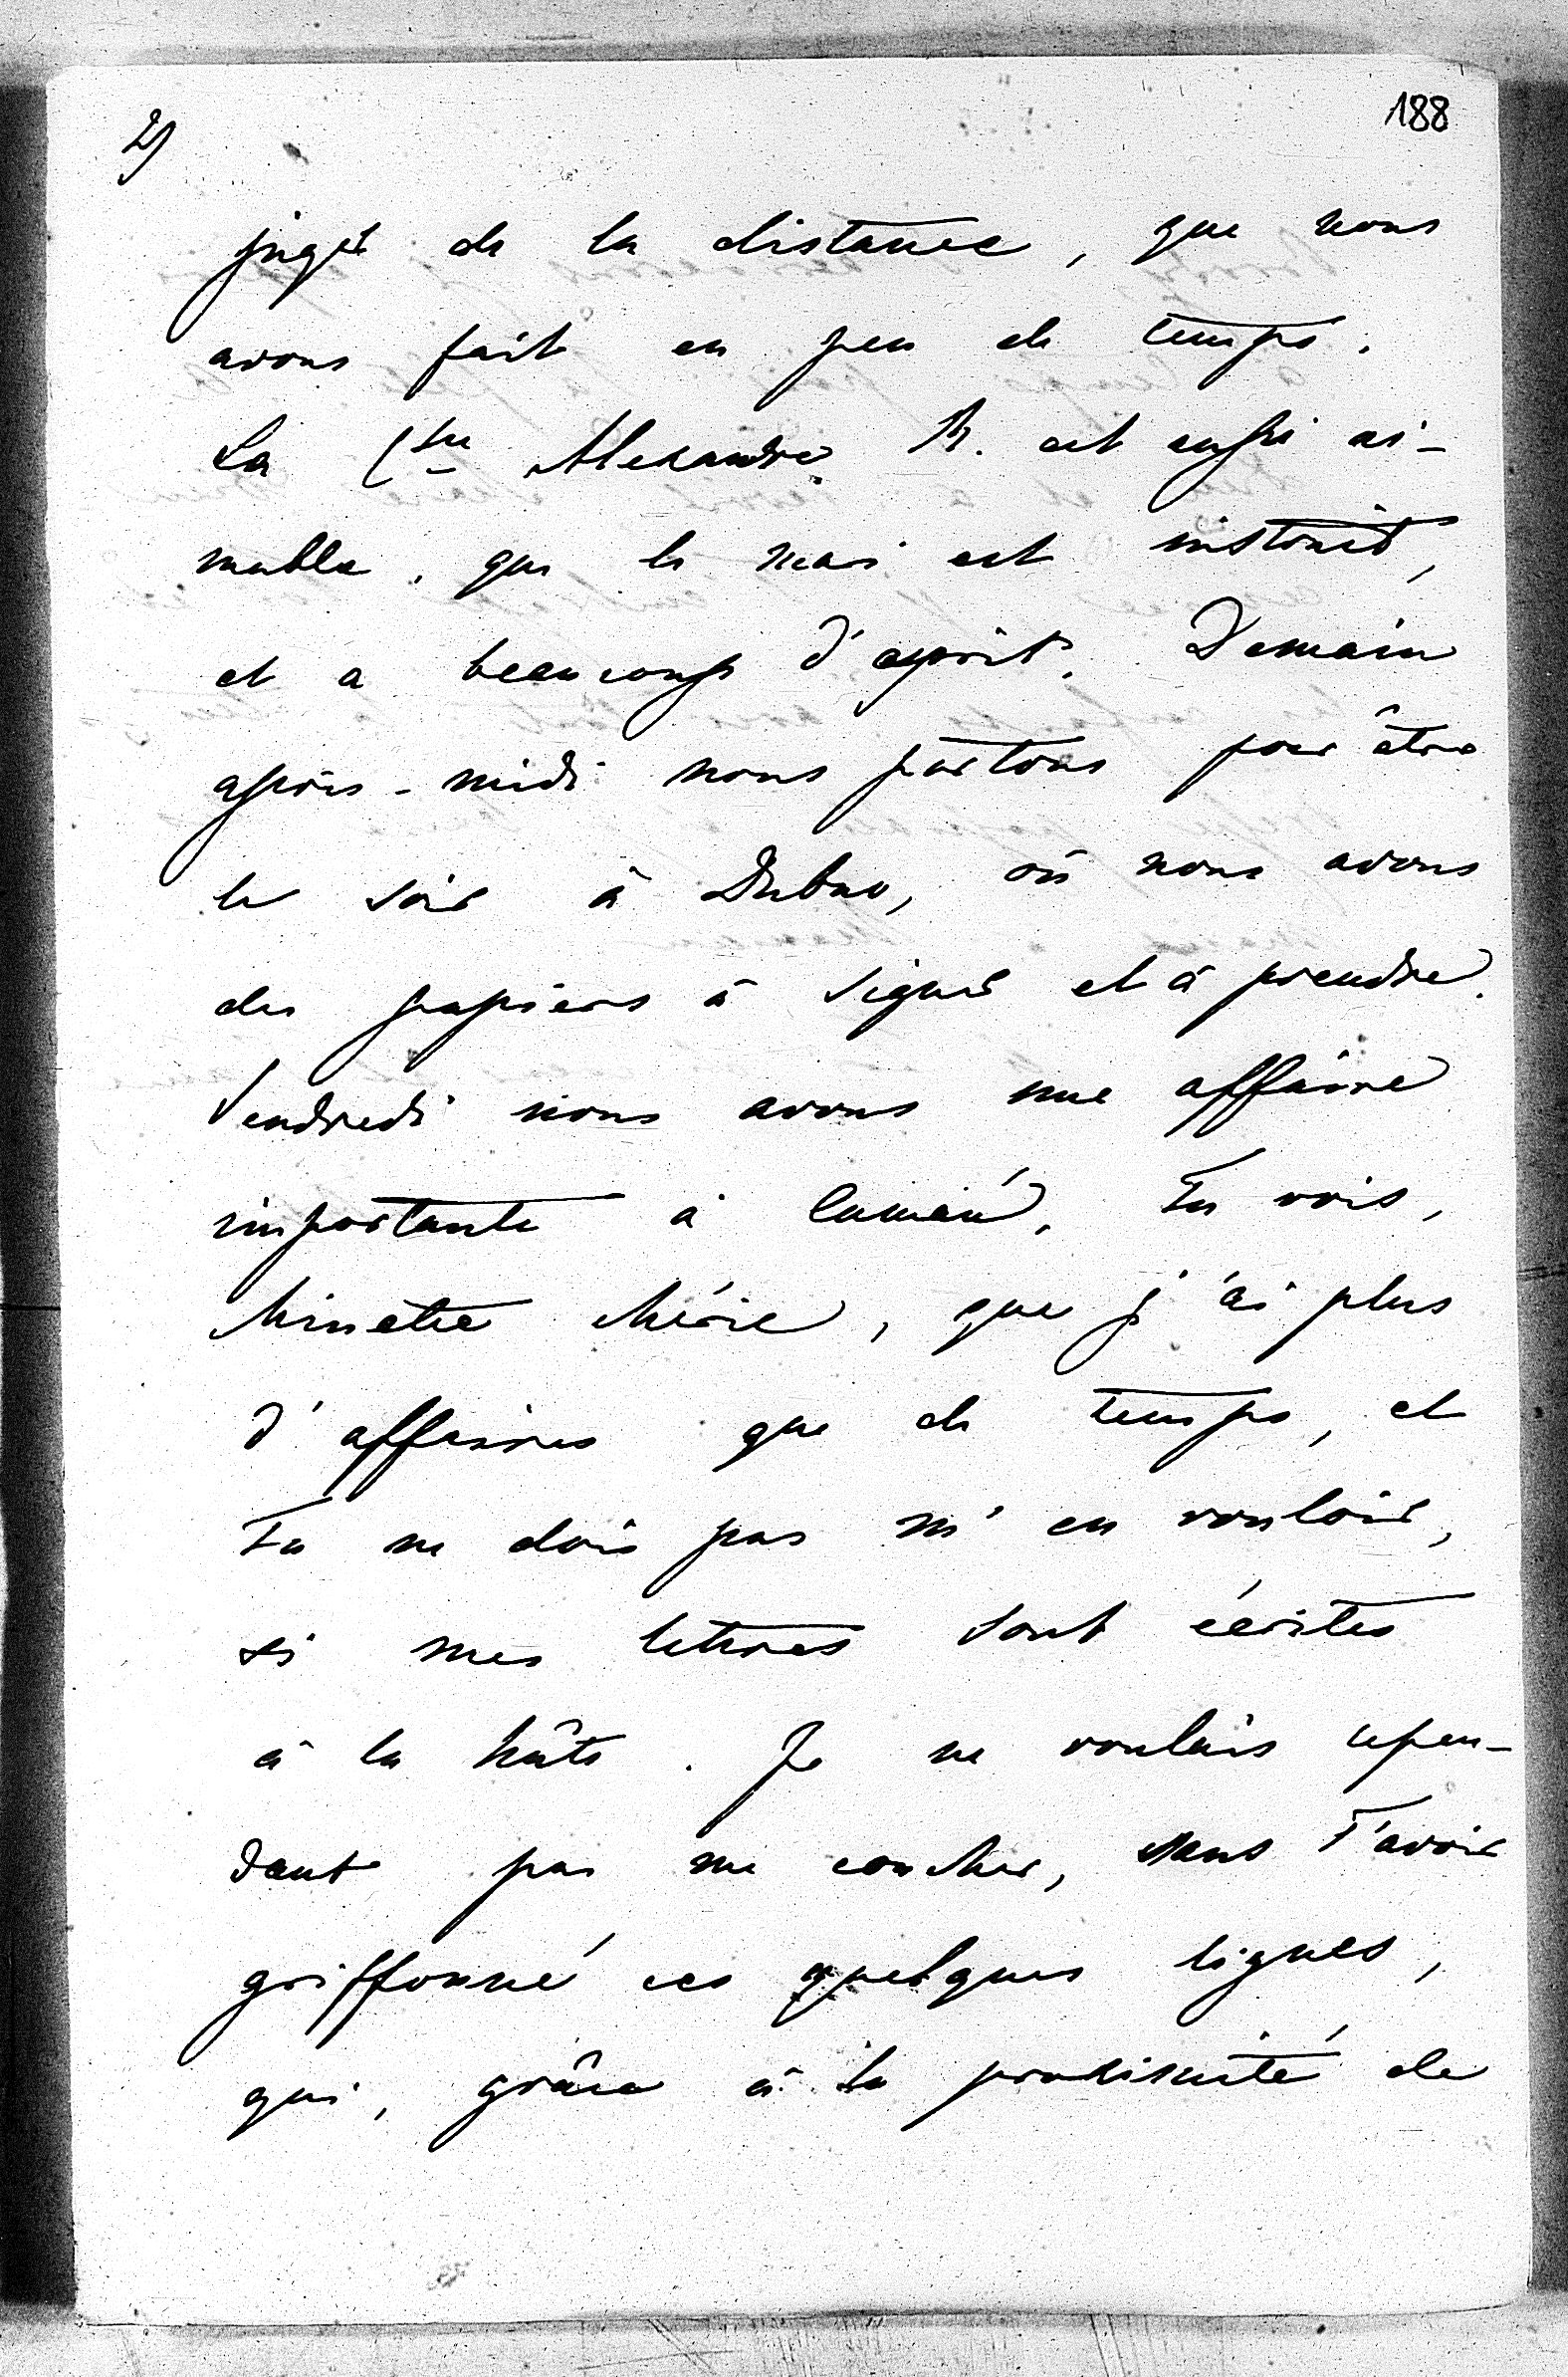 2)
188
juger de la distance, que nous
avons fait en peu de temps.
La Ctsse Alexandre B. est aussi ai-
mable, que le mari est instruit,
et a beaucoup d'esprit. Demain
après-midi nous partons pour être
le soir à Dubno, où nous avons
des papiers à signer et à prendre.
Vendredi nous avons une affaire
importante à . Tu vois,
Minette chérie, que j'ai plus
d'affaires que de temps, et
Tu ne dois pas m'en vouloir,
si mes lettres sont écrites
à la hâte. Je ne voulais cepen-
dant pas me coucher, sans T'avoir
griffonné ces quelques lignes,
qui, grâce à la proximité de